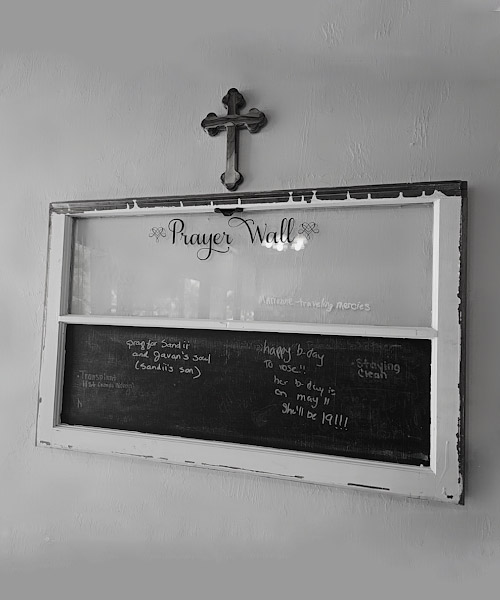 Prayer Wall
traveling mercies
pray for Sandii
and Javan's soul
(Sandii's son)
Transplant
happy b-day
to rose!!
her b-day is
on may 11
She'll be 19!!!
Staying
Clean